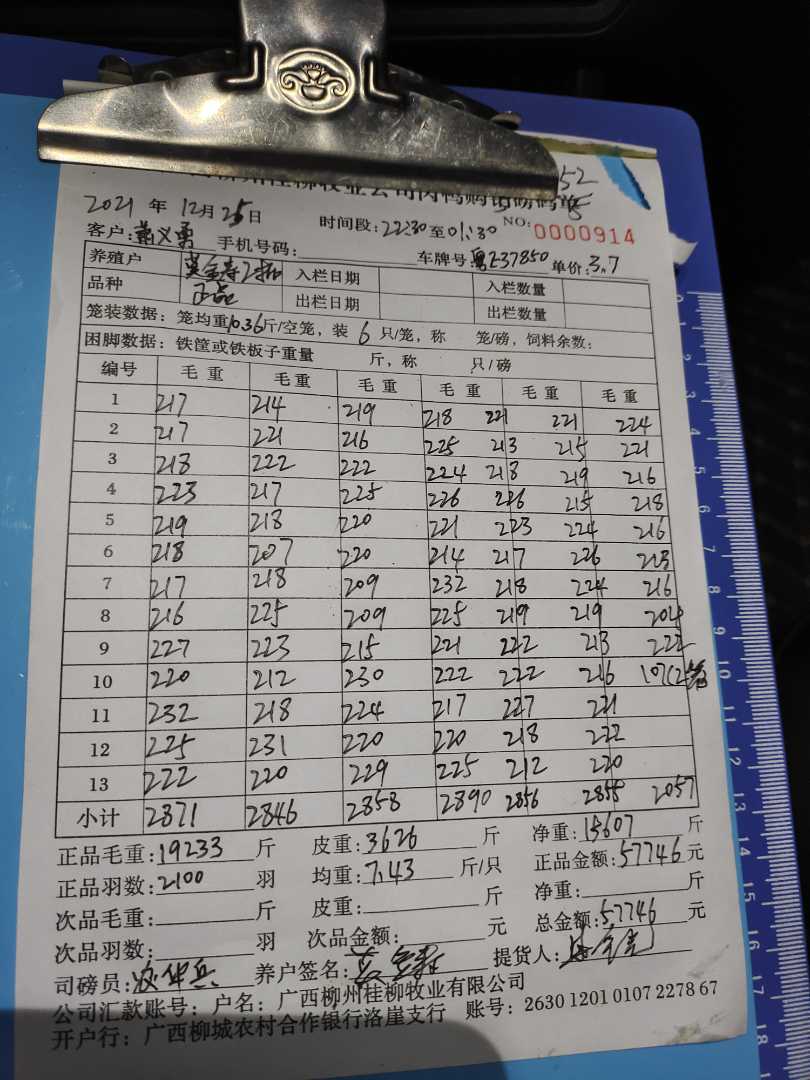 52
柳州桂柳牧业公司肉鸭购销磅码单
2021 年 12月 25日 时间段: 22:30 至 01:30 NO: 0000914
客户: 手机号码: 车牌号: 粤E37850 单价: 3.7
养殖户 入栏日期 入栏数量
品种 正品 出栏日期 出栏数量
笼装数据: 笼均重 10.36 斤/空笼, 装 6 只/笼, 称 笼/磅, 饲料余数:
困脚数据: 铁筐或铁板子重量 斤, 称 只/磅
编号 毛重 毛重 毛重 毛重 毛重 毛重
1 217 214 219 218 221 221 224
2 217 221 216 225 213 215 221
3 218 222 222 224 218 219 216
4 223 217 225 226 226 215 218
5 219 218 220 221 223 224 216
6 218 207 220 214 217 226 213
7 217 218 209 232 218 224 216
8 216 225 209 225 219 219 204
9 227 223 215 221 222 213 222
10 220 212 230 222 222 216 107(2笼
11 232 218 224 217 227 221
12 225 231 220 220 218 222
13 222 220 229 225 212 220
小计 2871 2846 2858 2890 2856 2855 2057
正品毛重: 19233 斤 皮重: 3626 斤 净重: 15607 斤
正品羽数: 2100 羽 均重: 7.43 斤/只 正品金额: 57746 元
次品毛重: 斤 皮重: 斤 净重: 斤
次品羽数: 羽 次品金额: 元 总金额: 57746 元
司磅员: 养户签名: 提货人:
公司汇款账号: 户名: 广西柳州桂柳牧业有限公司
开户行: 广西柳城农村合作银行洛崖支行 账号: 2630 1201 0107 2278 67